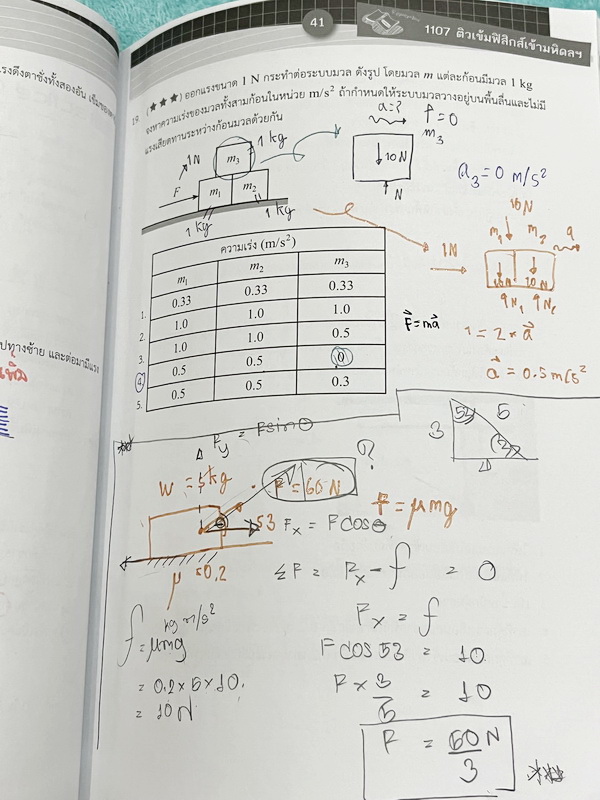 41
1107 ติวเข้มฟิสิกส์เข้ามหิดลฯ
19. (★★★) ออกแรงขนาด 1 N กระทำต่อระบบมวล ดังรูป โดยมวล m แต่ละก้อนมีมวล 1 kg
จงหาความเร่งของมวลทั้งสามก้อนในหน่วย m/s² ถ้ากำหนดให้ระบบมวลวางอยู่บนพื้นลื่นและไม่มี
แรงเสียดทานระหว่างก้อนมวลด้วยกัน
a=?
f=0
m3
1 kg
1N
m3
10N
N
F
m1
m2
1 kg
1 kg
a3=0 m/s²
10N
m1
m2
a
1N
10N
10N
ความเร่ง (m/s²)
m1 m2 m3
1. 0.33 0.33 0.33
2. 1.0 1.0 1.0
3. 1.0 1.0 0.5
4. 0.5 0.5 0
5. 0.5 0.5 0.3
F=ma
1=2×a
a=0.5m/s²
รงดึงตาชั่งทั้งสองอัน
ปทางซ้าย และต่อมามีแรง
53
5
3
Fy = Fsinθ
W = 5kg
F=60N
53
Fx = Fcosθ
f=μmg
μ=0.2
ΣF = Fx-f = 0
kg m/s²
f=μmg
Fx = f
Fcos53 = 10
= 0.2×5×10.
F×3/5 = 10
= 10N
F = 50N/3